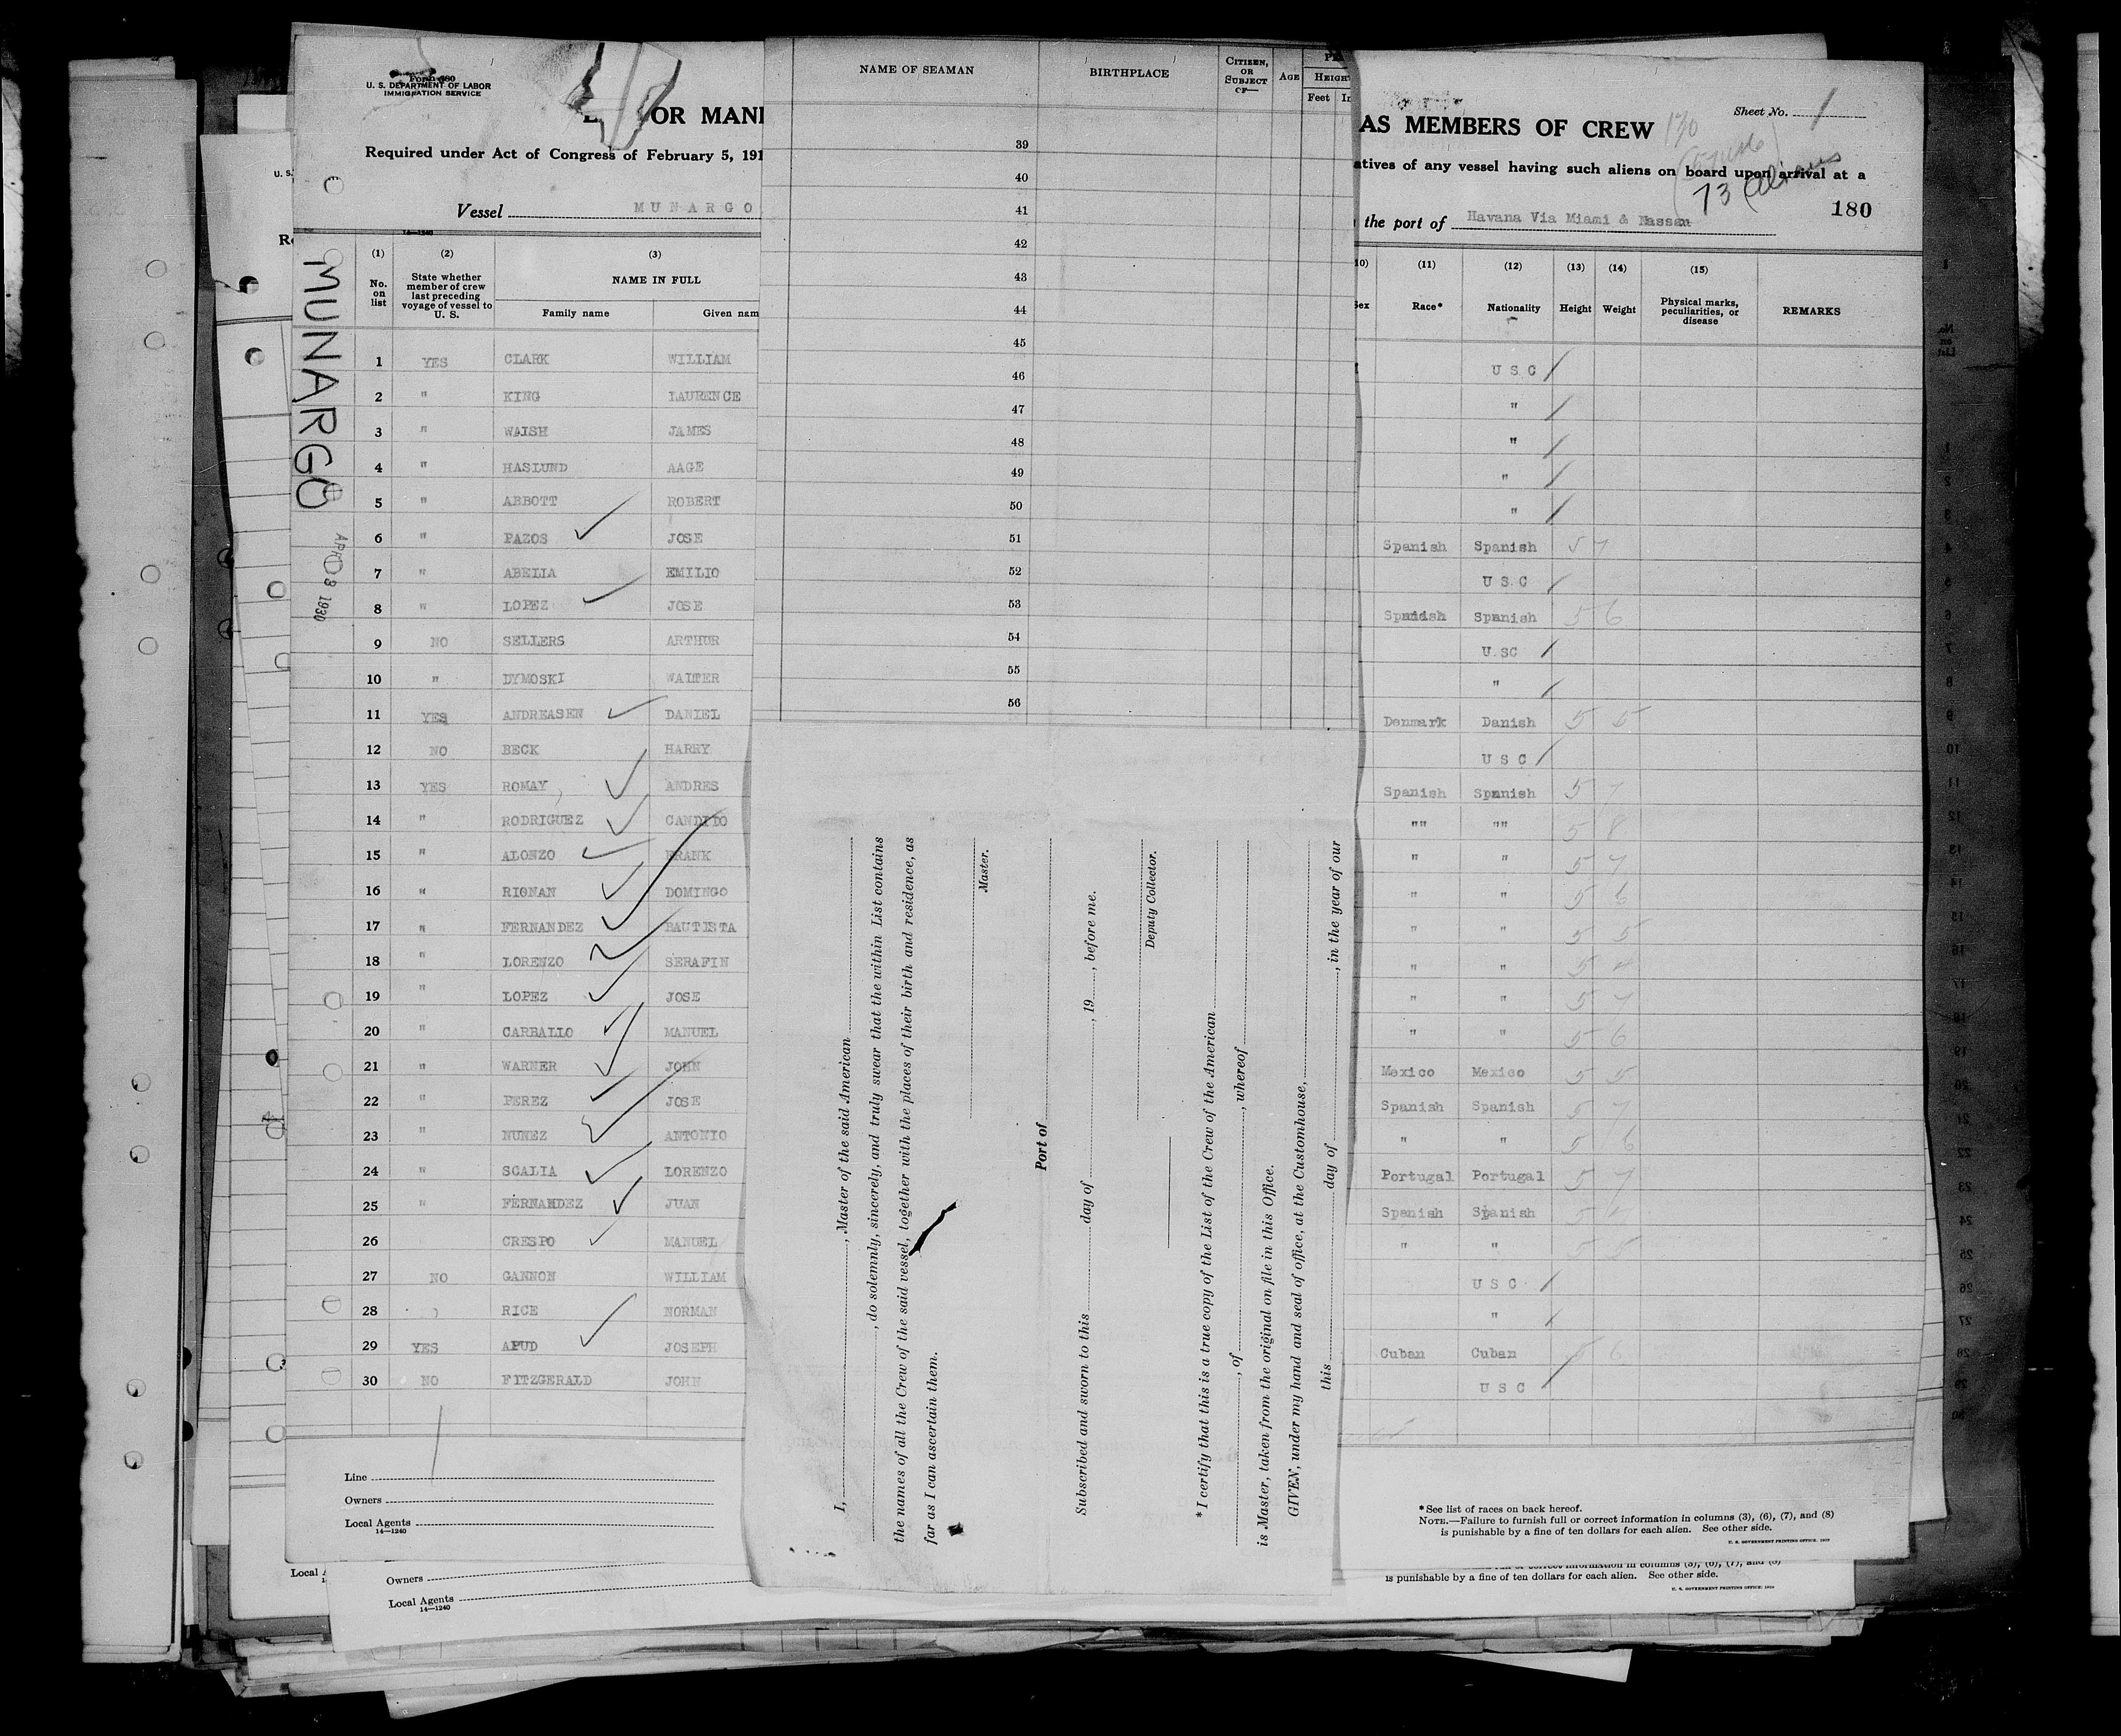 Form 680
U. S. DEPARTMENT OF LABOR
IMMIGRATION SERVICE
OR MANI
Required under Act of Congress of February 5, 191
Vessel MUNARGO
14—1240
MUNARGO
APR 8 1930
(1) (2) (3)
No. on list
State whether member of crew last preceding voyage of vessel to U. S.
NAME IN FULL
Family name Given nam
1 YES CLARK WILLIAM
2 " KING LAURENCE
3 " WAISH JAMES
4 " HASLUND AAGE
5 " ABBOTT ROBERT
6 " PAZOS JOSE
7 " ABELIA EMILIO
8 " LOPEZ JOSE
9 NO SELLERS ARTHUR
10 " DYMOSKI WALTER
11 YES ANDREASEN DANIEL
12 NO BECK HARRY
13 YES ROMAY ANDRES
14 " RODRIGUEZ CANDIDO
15 " ALONZO FRANK
16 " RIONAN DOMINGO
17 " FERNANDEZ BAUTISTA
18 " LORENZO SERAFIN
19 " LOPEZ JOSE
20 " CARBALLO MANUEL
21 " WARNER JOHN
22 " PEREZ JOSE
23 " NUNEZ ANTONIO
24 " SCALIA LORENZO
25 " FERNANDEZ JUAN
26 CRESPO MANUEL
27 NO GANNON WILLIAM
28 RICE NORMAN
29 YES APUD JOSEPH
30 NO FITZGERALD JOHN
Line
Owners
Local Agents
14—1240
Owners
Local Agents
14—1240
NAME OF SEAMAN BIRTHPLACE CITIZEN, OR SUBJECT OF— AGE
HEIGH
Feet In
39
40
41
42
43
44
45
46
47
48
49
50
51
52
53
54
55
56
I, , Master of the said American
, do solemnly, sincerely, and truly swear that the within List contains
the names of all the Crew of the said vessel, together with the places of their birth and residence, as
far as I can ascertain them.
Master.
Port of
Subscribed and sworn to this day of , 19 , before me.
Deputy Collector.
* I certify that this is a true copy of the List of the Crew of the American
, of , whereof
is Master, taken from the original on file in this Office.
GIVEN, under my hand and seal of office, at the Customhouse,
this day of , in the year of our
Sheet No. 1
AS MEMBERS OF CREW
73 Aliens
atives of any vessel having such aliens on board upon arrival at a
180
the port of Havana Via Miami & Nassau
10) (11) (12) (13) (14) (15)
Sex Race* Nationality Height Weight Physical marks, peculiarities, or disease REMARKS
U S C
"
"
"
"
Spanish Spanish 5 7
U S C
Spanish Spanish 5 6
U.SC
"
Denmark Danish 5 5
U S C
Spanish Spanish 5 7
"" "" 5 8
" " 5 7
" " 5 6
" " 5 5
" " 5
" " 5 7
" " 5 6
Mexico Mexico 5 5
Spanish Spanish 5 7
" " 5 6
Portugal Portugal 5 7
Spanish Spanish 5
" " 5 5
U S C
"
Cuban Cuban 5 6
U S C
*See list of races on back hereof.
NOTE.—Failure to furnish full or correct information in columns (3), (6), (7), and (8)
is punishable by a fine of ten dollars for each alien. See other side.
U. S. GOVERNMENT PRINTING OFFICE: 1929
is punishable by a fine of ten dollars for each alien. See other side.